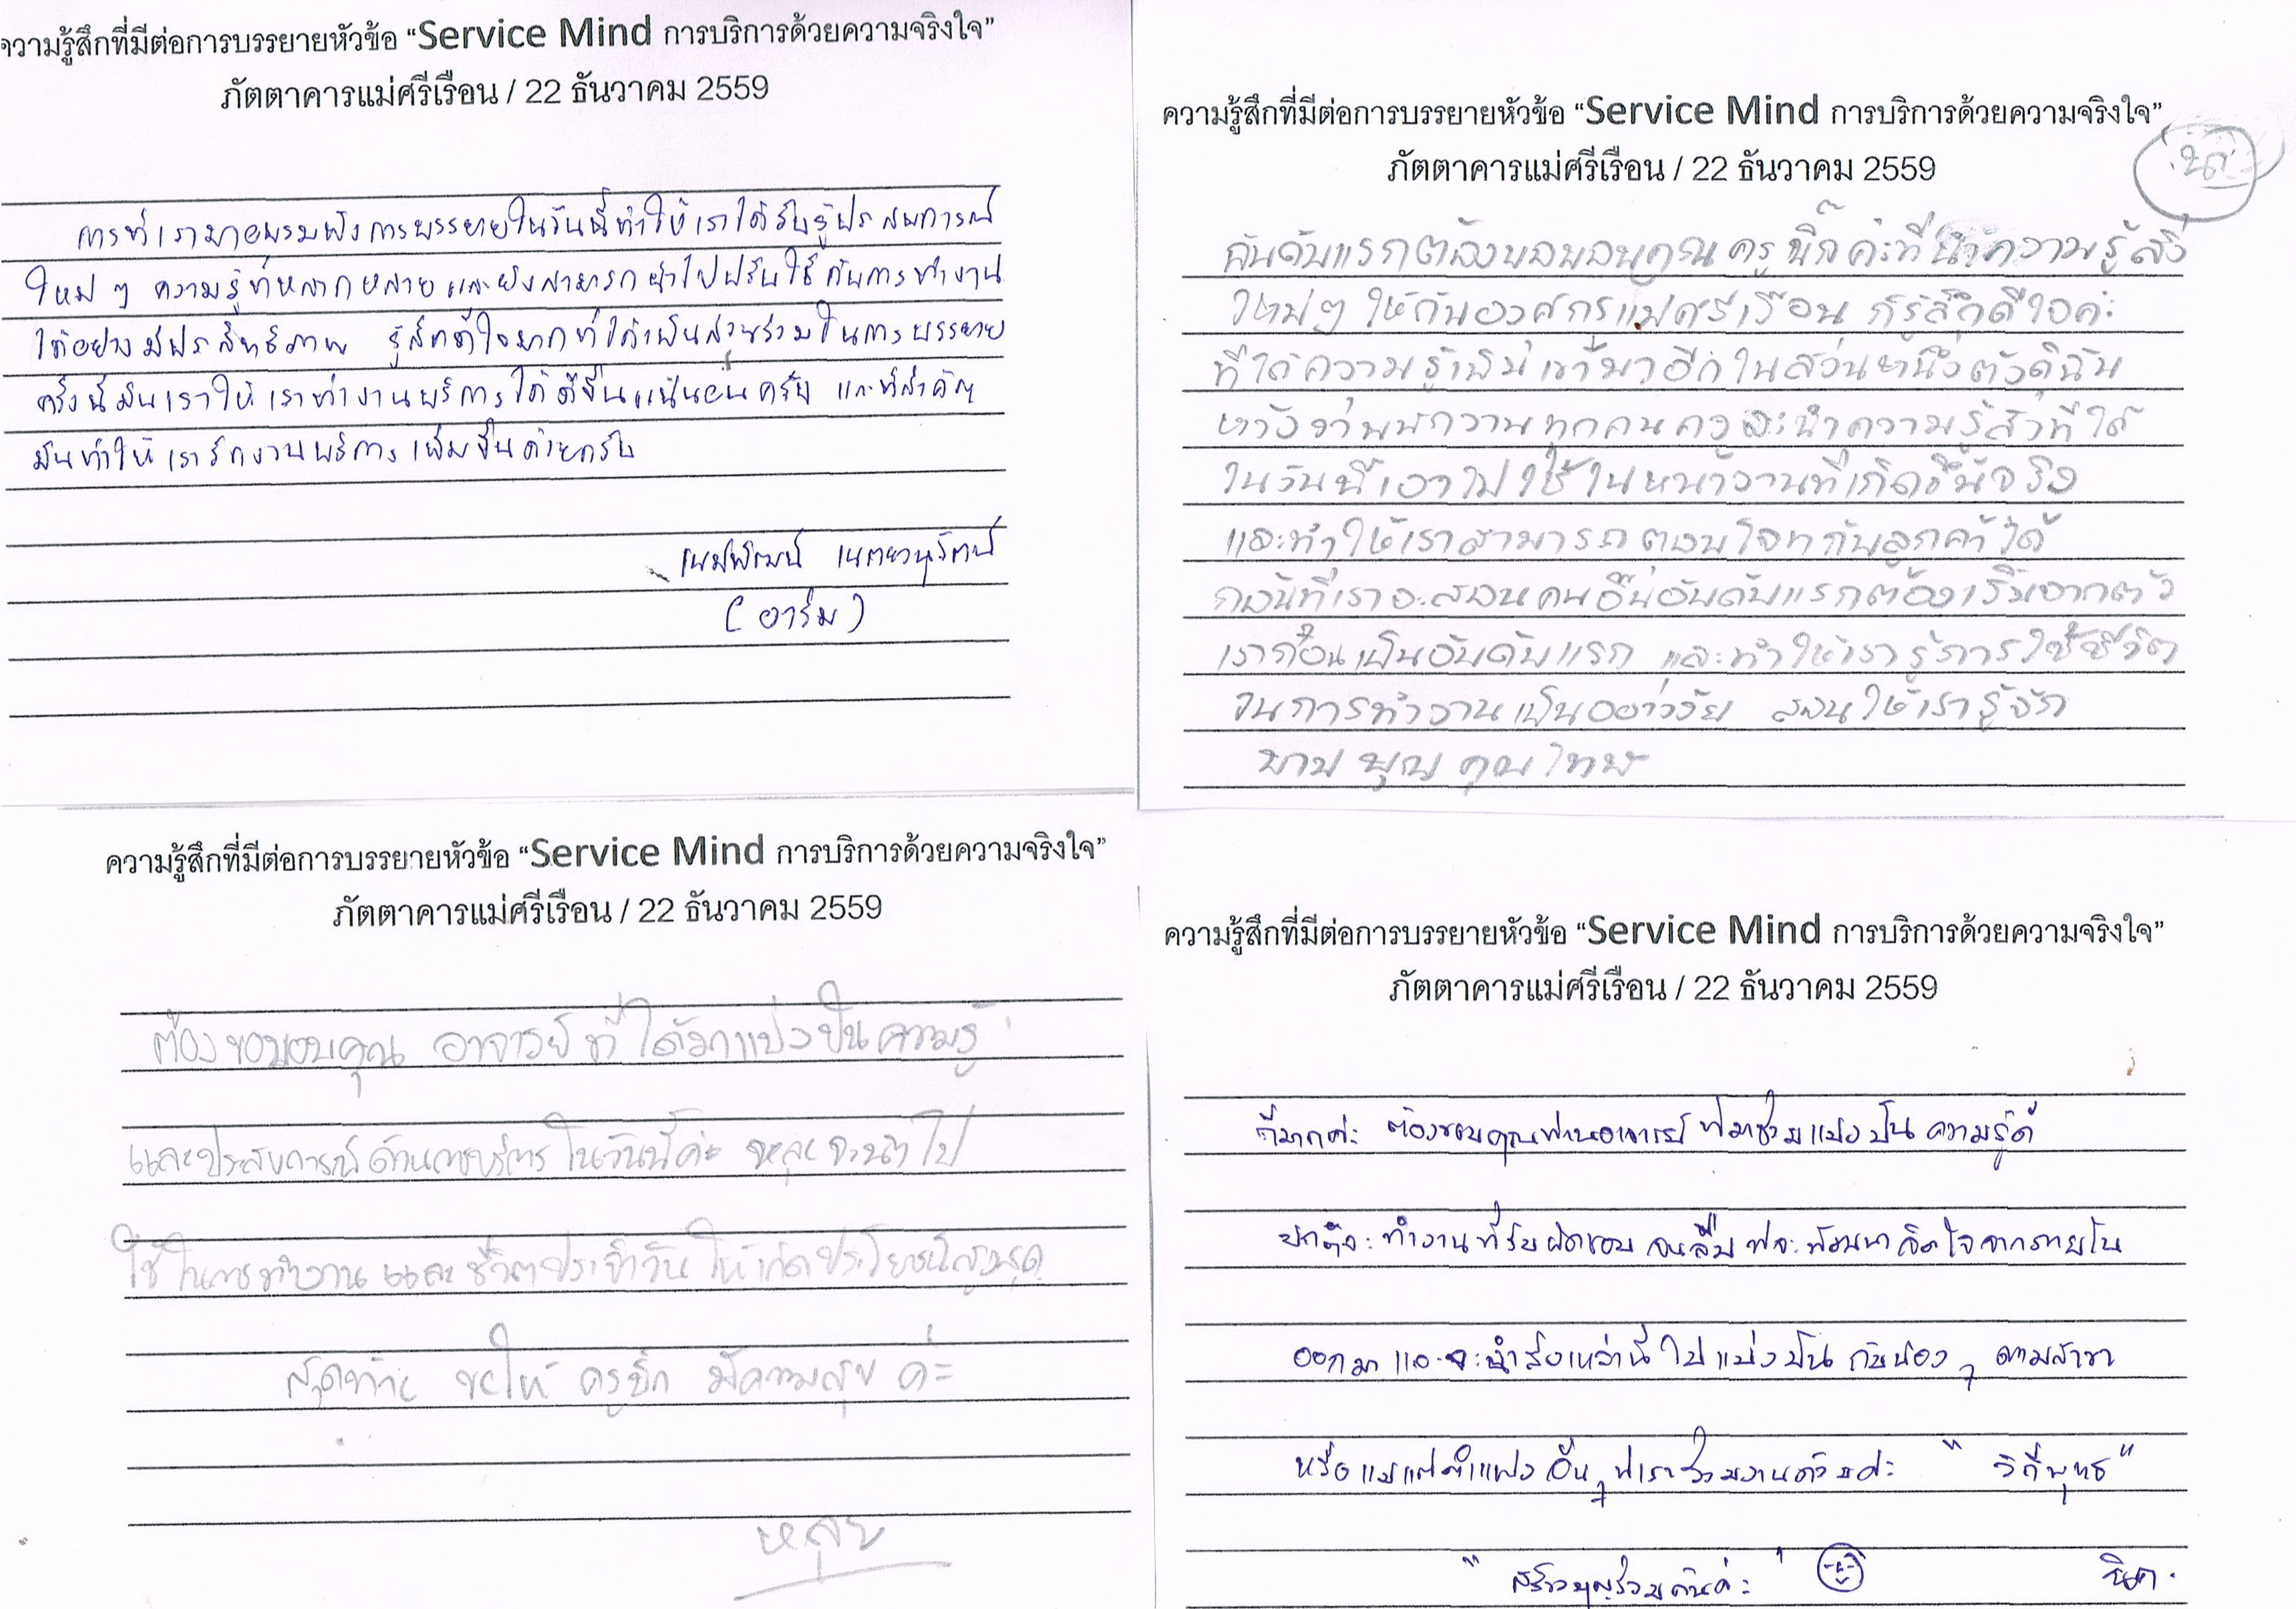 ความรู้สึกที่มีต่อการบรรยายหัวข้อ “Service Mind การบริการด้วยความจริงใจ”
ภัตตาคารแม่ศรีเรือน / 22 ธันวาคม 2559
การที่เรามาอบรมฟังการบรรยายในวันนี้ทำให้เราได้รับรู้ประสพการณ์
ใหม่ ๆ ความรู้ที่หลากหลายและยังสามารถนำไปปรับใช้กับการทำงาน
ได้อย่างมีประสิทธิภาพ รู้สึกดีใจมากที่ได้เป็นส่วนร่วมในการบรรยาย
ครั้งนี้มันเราให้เราทำงานบริการได้ดีขึ้นแน่นอนครับ และที่สำคัญ
มันทำให้เรารักงานบริการเพิ่มขึ้นด้วยครับ
(อาร์ม)
ความรู้สึกที่มีต่อการบรรยายหัวข้อ “Service Mind การบริการด้วยความจริงใจ”
ภัตตาคารแม่ศรีเรือน / 22 ธันวาคม 2559
อันดับแรกต้องขอขอบคุณครูบิ๊กค่ะที่นำความรู้สิ่ง
ใหม่ๆ ให้กับองค์กรแม่ศรีเรือน ก็รู้สึกดีใจค่ะ
ที่ได้ความรู้เพิ่มเข้ามาอีกในส่วนหนึ่งตัวดิฉัน
หวังว่าพนักงานทุกคนคงจะนำความรู้สิ่งที่ได้
ในวันนี้เอาไปใช้ในหน้างานที่เกิดขึ้นจริง
และทำให้เราสามารถตอบโจทก์ลูกค้าได้
ก่อนที่เราจะสอนคนอื่นอันดับแรกต้องเริ่มจากตัว
เราก่อนเป็นอันดับแรก และทำให้เรารู้การใช้ชีวิต
ในการทำงานเป็นอย่างไร สอนให้เรารู้จัก
บาป บุญ คุณ โทษ
ความรู้สึกที่มีต่อการบรรยายหัวข้อ “Service Mind การบริการด้วยความจริงใจ”
ภัตตาคารแม่ศรีเรือน / 22 ธันวาคม 2559
ต้องขอขอบคุณ อาจารย์ที่ได้มาแบ่งปันความรู้
และประสบการณ์ด้านการบริการในวันนี้ค่ะ และจะนำไป
ใช้ในการทำงานและชีวิตประจำวันให้เกิดประโยชน์สูงสุด
สุดท้าย ขอให้ ครูบิ๊ก มีความสุข ค่ะ
ความรู้สึกที่มีต่อการบรรยายหัวข้อ “Service Mind การบริการด้วยความจริงใจ”
ภัตตาคารแม่ศรีเรือน / 22 ธันวาคม 2559
ดีมากค่ะ ต้องขอบคุณท่านอาจารย์ที่มาช่วยแบ่งปันความรู้ดี
ทำงานที่รับผิดชอบ จนลืมที่จะพัฒนาจิตใจจากภายใน
ออกมา และจะนำสิ่งเหล่านี้ไปแบ่งปันกับน้อง ๆ ตามสาขา
หรือแม้แต่ตำแหน่งอื่น ๆ ที่เราร่วมงานด้วยค่ะ " วิถีพุทธ "
" สร้างบุญร่วมกันค่ะ "